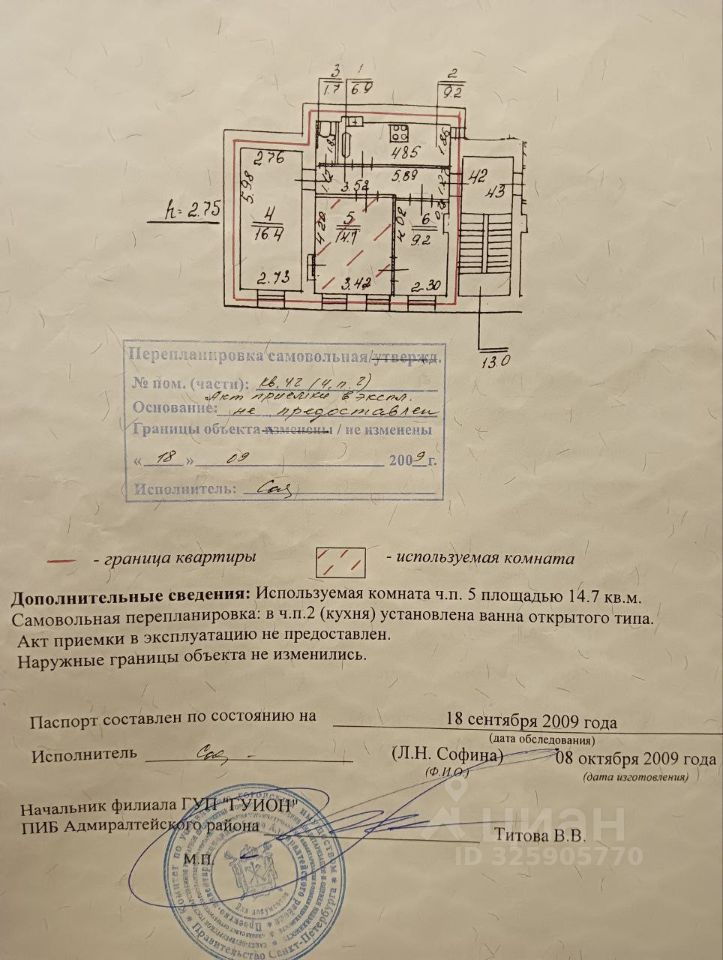 3 1 2
1.7 6.9 9.2
1.85
4.85
1.85
2.76
5.89
42
43
3.52
5.98
h=2.75
4
16.4
4.20
5
14.7
4.02
6
9.2
2.73
3.42
2.30
13.0
Перепланировка самовольная/утвержд.
№ пом. (части): кв. 42 (ч.п. 2)
Акт приемки в экспл.
Основание: не предоставлен
Границы объекта изменены / не изменены
« 18 » 09 2009 г.
Исполнитель:
- граница квартиры - используемая комната
Дополнительные сведения: Используемая комната ч.п. 5 площадью 14.7 кв.м.
Самовольная перепланировка: в ч.п.2 (кухня) установлена ванна открытого типа.
Акт приемки в эксплуатацию не предоставлен.
Наружные границы объекта не изменились.
Паспорт составлен по состоянию на 18 сентября 2009 года
(дата обследования)
Исполнитель (Л.Н. Софина) 08 октября 2009 года
(Ф.И.О.) (дата изготовления)
Начальник филиала ГУП "ГУИОН"
ПИБ Адмиралтейского района Титова В.В.
М.П.
циан
ID 325905770
Правительство Санкт-Петербурга